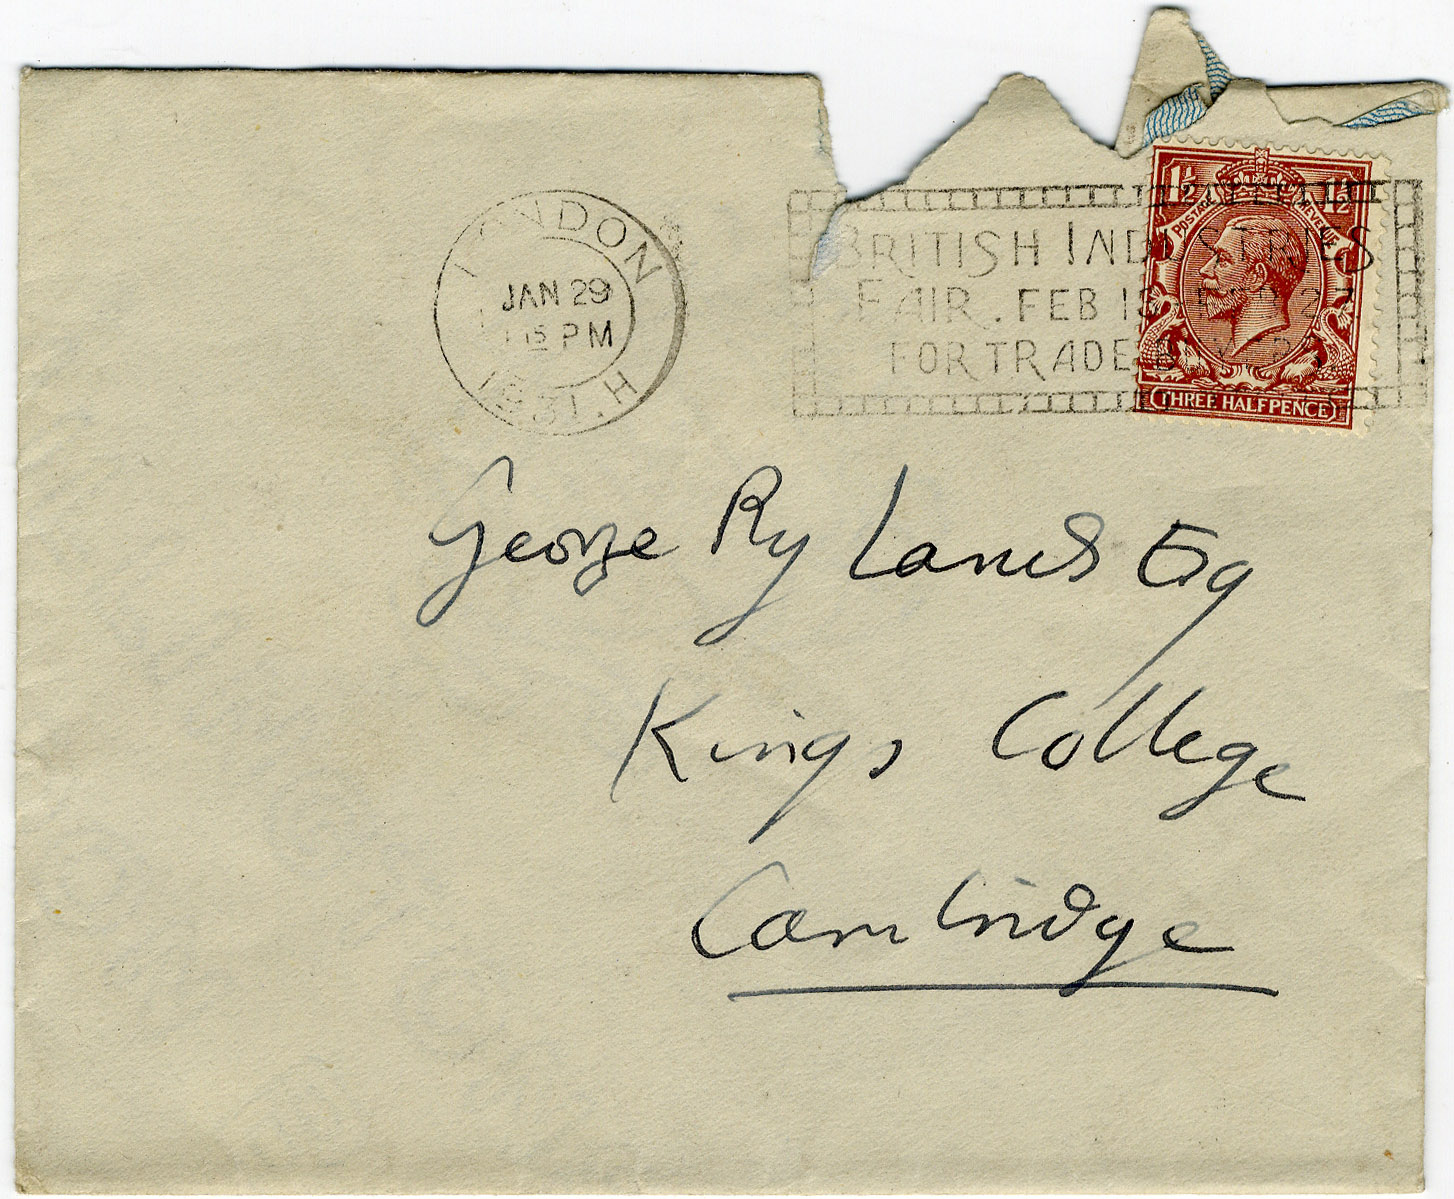 LONDON
JAN 29
15 PM
1931.H
BRITISH INDUSTRIES
FAIR. FEB 16 27
FOR TRADE BUYERS
1½ 1½
POSTAGE REVENUE
THREE HALFPENCE
George Ry Lands Esq
Kings College
Cambridge